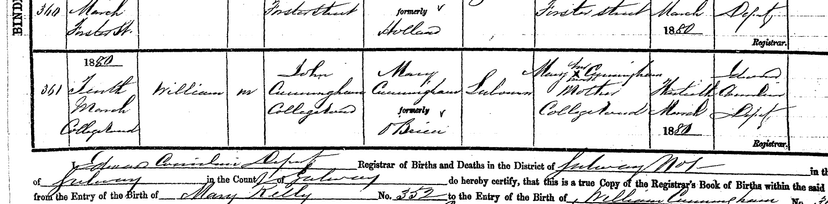 340 March Forster St. Forster street formerly Holland Forster street March 1880 Deputy Registrar.
1880
361 Tenth March College road
William
m
John Cunningham College road
Mary Cunningham formerly O'Brien
Labourer
Mary X Cunningham Mother College road
March 1880
Deputy
Registrar.
I Edward Deputy Registrar of Births and Deaths in the District of Galway No 1 in th
of Galway in the County of Galway do hereby certify, that this is a true Copy of the Registrar's Book of Births within the said
from the Entry of the Birth of Mary Kelly No. 352 to the Entry of the Birth of William Cunningham No. 3
BINDI